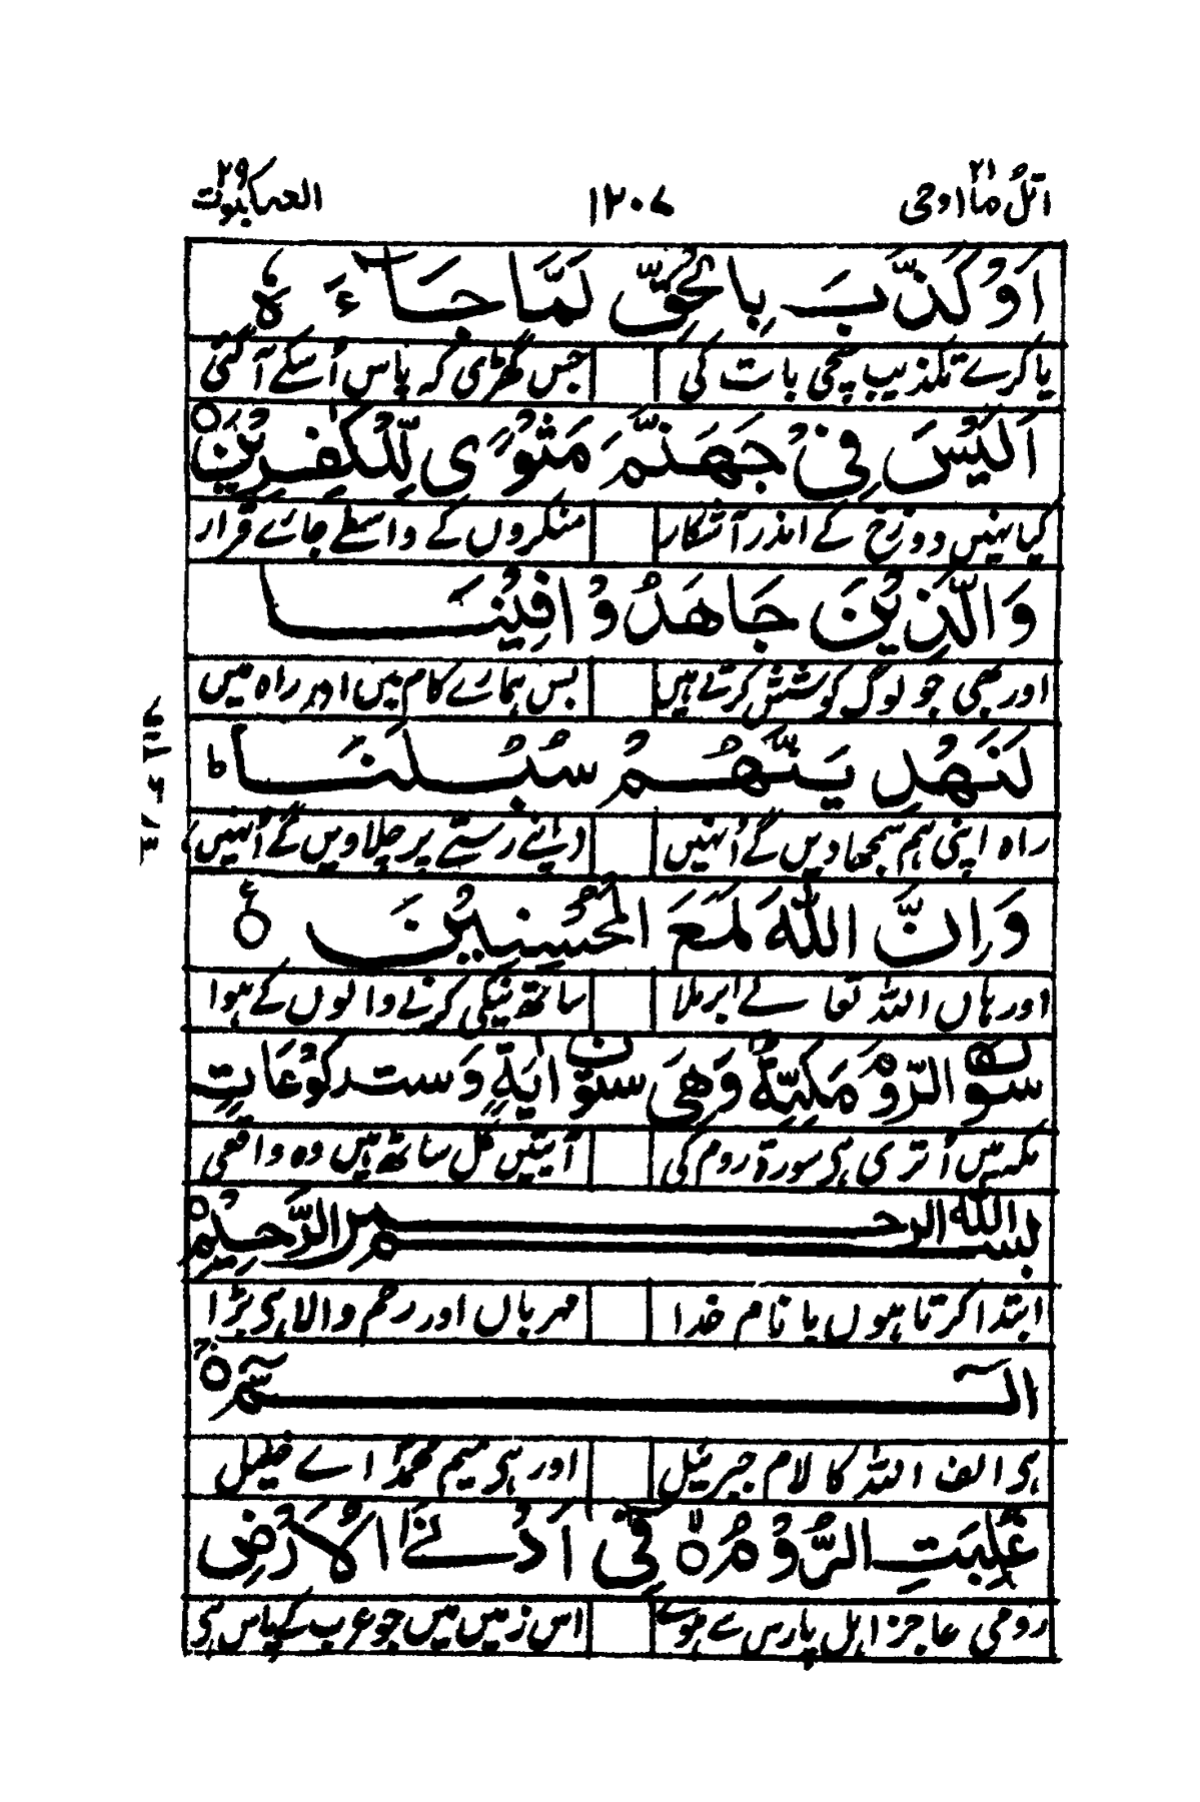 اتل ما اوحی ۲۱ ۱۲۰۷ العنکبوت ۲۹
اَوْ كَذَّبَ بِالْحَقِّ لَمَّا جَآءَهٗ ط
یا کرے تکذیب سچی بات کی جس گھڑی کہ پاس اُسکے آ گئی
اَلَيْسَ فِيْ جَهَنَّمَ مَثْوًى لِّلْكٰفِرِيْنَ ○
کیا نہیں دوزخ کے اندر آشکار منکروں کے واسطے جائے قرار
وَالَّذِيْنَ جَاهَدُوْا فِيْنَا
اور جو لوگ کوشش کرتے ہیں بس ہمارے کام میں اور راہ میں
لَنَهْدِيَنَّهُمْ سُبُلَنَا ط
راہ اپنی ہم سمجھا دیں گے اُنہیں اپنے رستے پر چلاویں گے اُنہیں
وَاِنَّ اللّٰهَ لَمَعَ الْمُحْسِنِيْنَ ○ ع
اور ہاں اللہ تعالےٰ برملا ساتھ نیکی کرنے والوں کے ہوا
سورة الروم مَكِّيَّةٌ وَهِيَ ستون اٰيَةً وَست رَكُوْعَاتٍ
مکہ میں اُتری ہی سورۃ روم کی آیتیں کل ساٹھ ہیں وہ واقعی
بسم الله الرحمن الرَّحِيْمِ ○
ابتدا کرتا ہوں با نام خدا مہرباں اور رحم والا ہی بڑا
الٓمّٓ ○
ہی الف اللہ کا لام جبرئیل اور ہی میم محمدؐ اے خلیل
غُلِبَتِ الرُّوْمُ ○ فِيْٓ اَدْنَى الْاَرْضِ
رومی عاجز اہل پارس سے ہوئے اس زمیں میں جو عرب کے پاس ہی